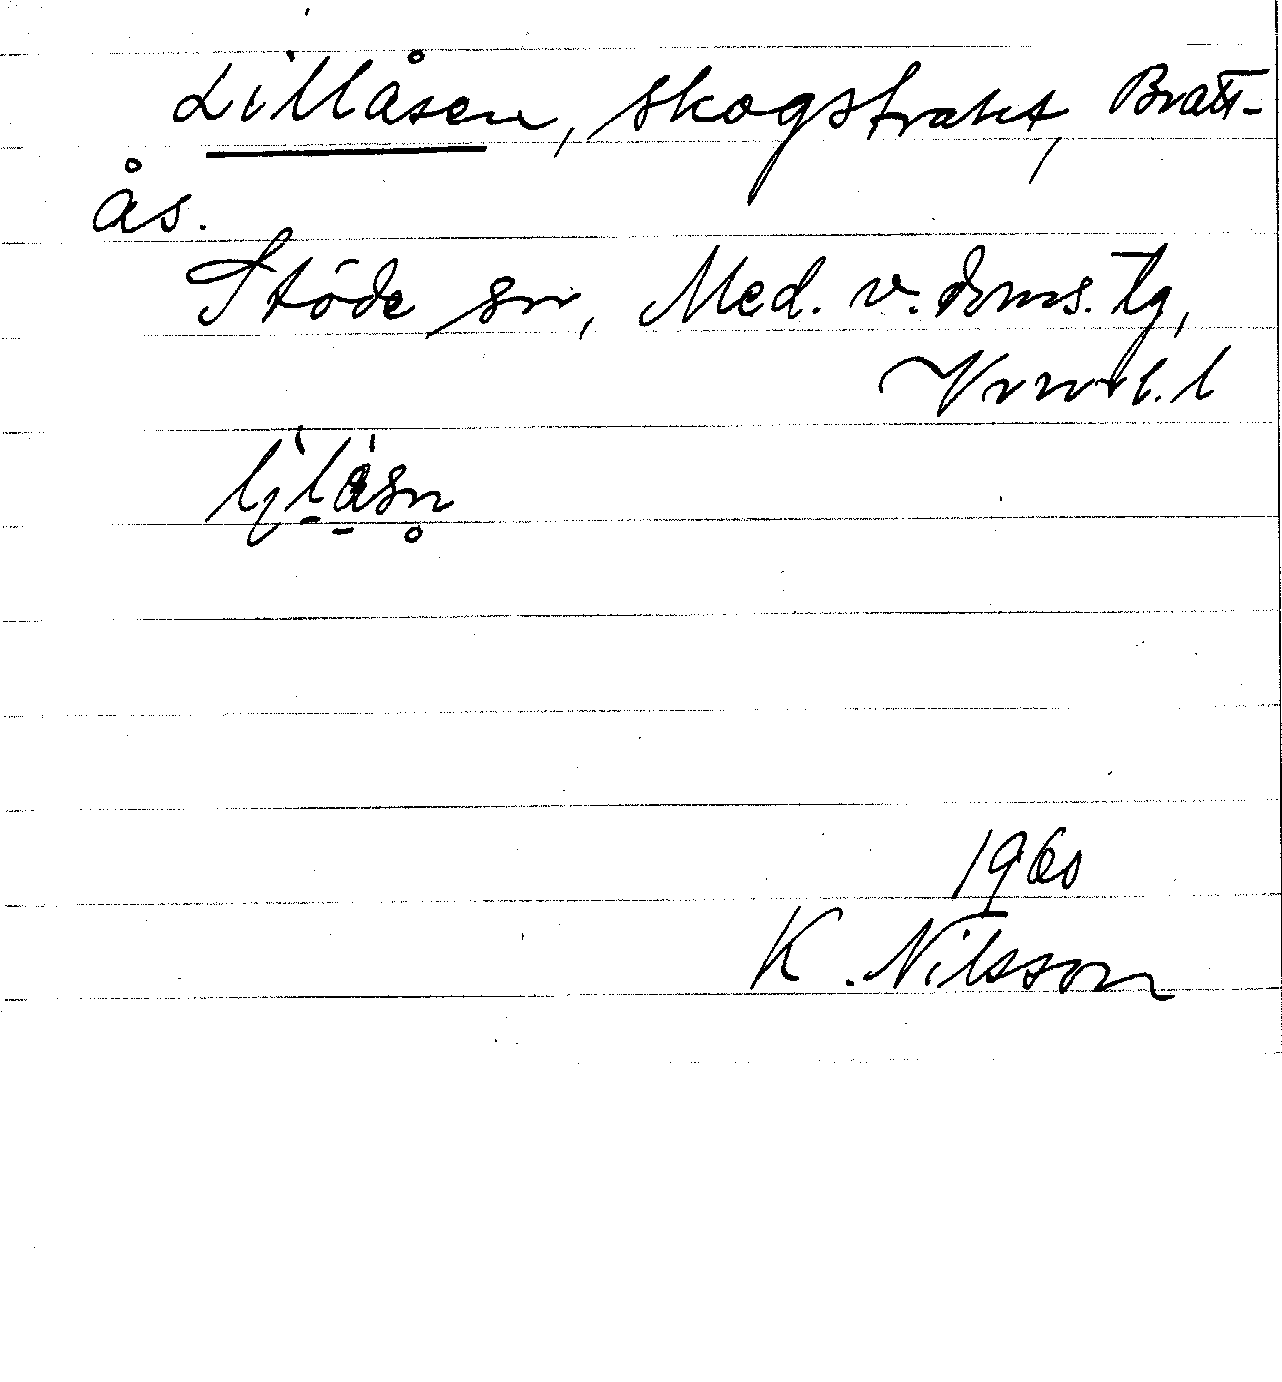 Lillåsen, skogstrakt, Bratt-
ås.
Stöde sn, Med. v. doms. tg,
Vrnl. l
1960
K. Nilsson